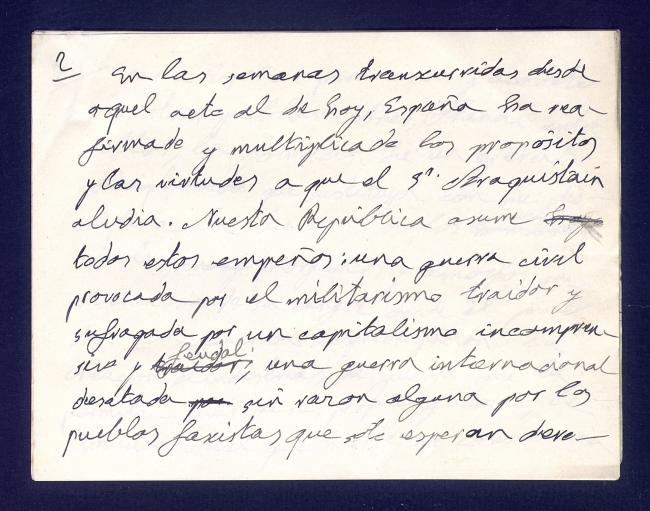 2
En las semanas transcurridas desde
aquel acto al de hoy, España ha rea-
firmado y multiplicado los propósitos
y las virtudes a que el Sr. Araquistain
aludia. Nuestra República asume hoy
todos estos empeños: una guerra civil
provocada por el militarismo traidor y
sufragada por un capitalismo incompren-
sivo y feudal; una guerra internacional
desatada por sin razon alguna por los
pueblos faxistas que solo esperan deve-